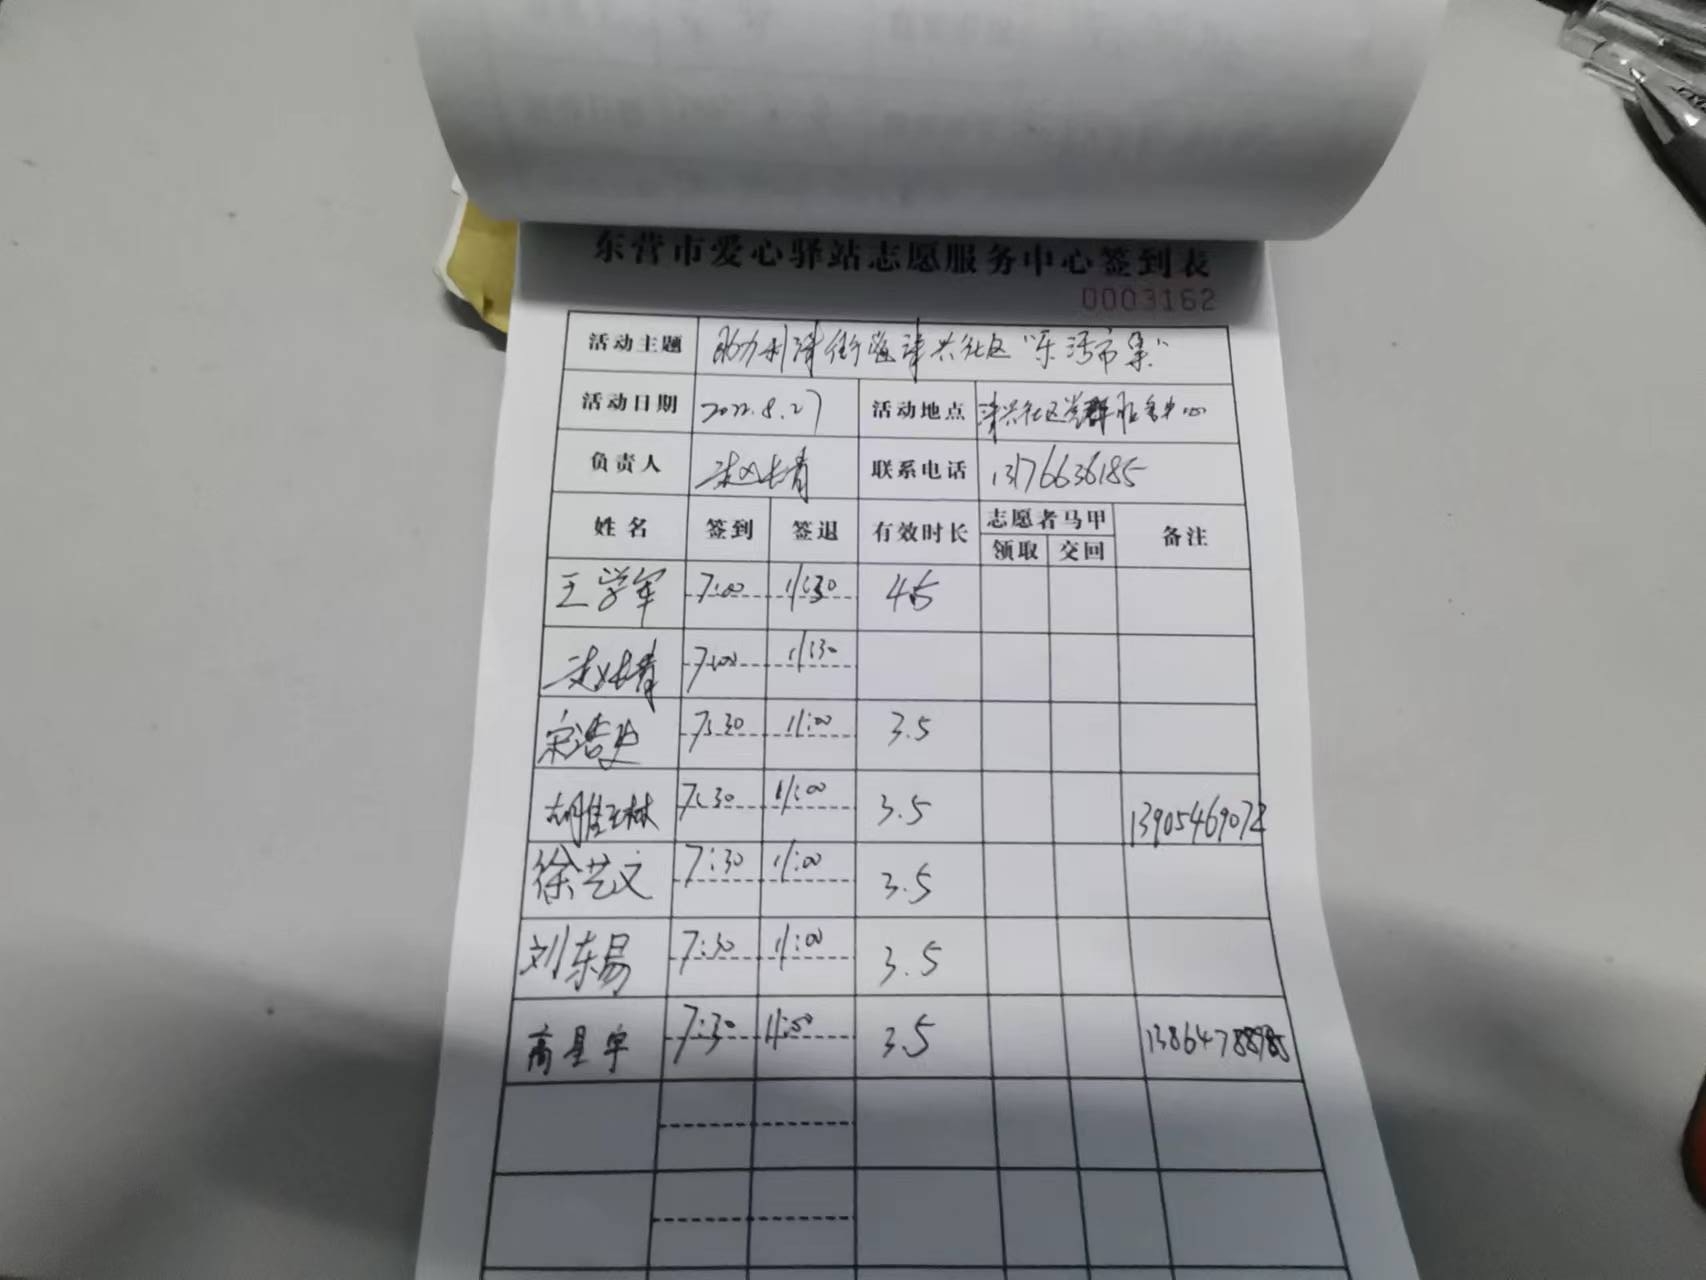 东营市爱心驿站志愿服务中心签到表
0003162
活动主题 助力利津街道津兴社区“乐活市集”
活动日期 2022.8.27 活动地点 津兴社区党群服务中心
负责人 赵长青 联系电话 13176636185
姓名 签到 签退 有效时长 志愿者马甲 备注
领取 交回
王学军 7:00 11:30 4.5
赵长青 7:00 11:30
宋浩 7:30 11:00 3.5
胡 林 7:30 11:00 3.5 13905469072
徐艺文 7:30 11:00 3.5
刘东易 7:30 11:00 3.5
高星宇 7:30 11:00 3.5